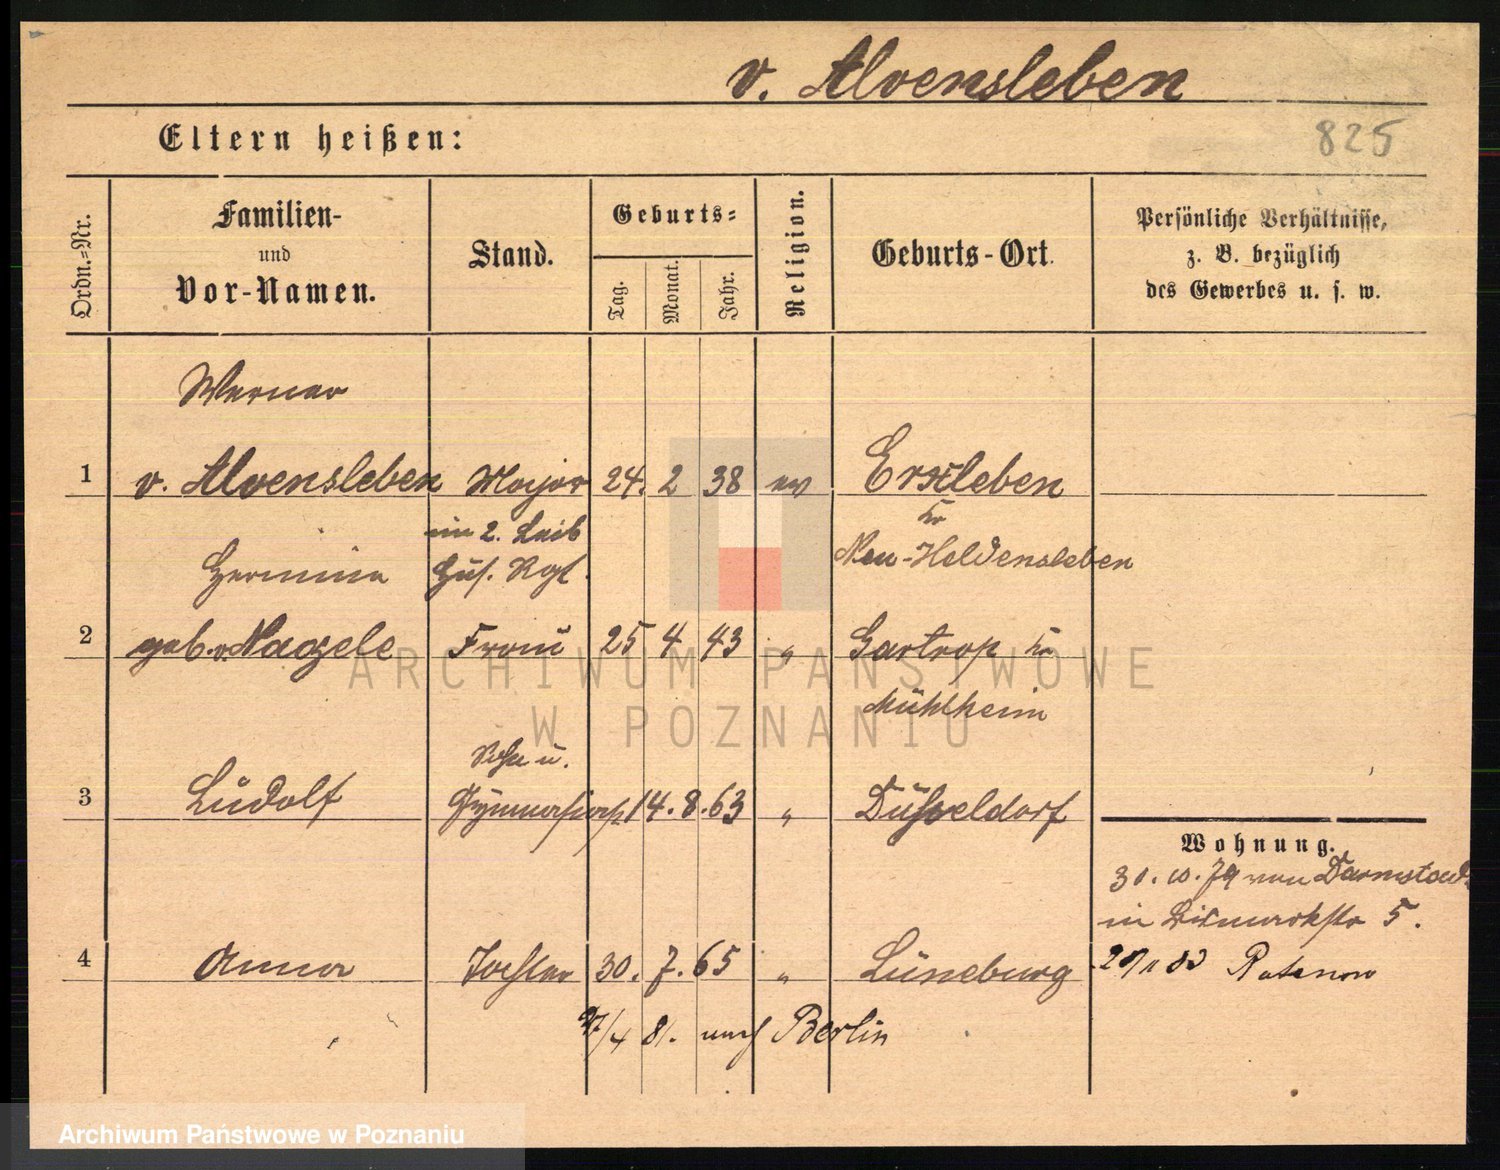 v. Alvensleben
Eltern heißen:
825
Ordn.-Nr.
Familien-
und
Vor-Namen.
Stand.
Geburts-
Tag.
Monat.
Jahr.
Religion.
Geburts-Ort.
Persönliche Verhältnisse,
z. B. bezüglich
des Gewerbes u. s. w.
Werner
1 v. Alvensleben Major 24. 2 38 ev Erxleben
im 2. Leib
Hus. Rgt.
Kr
Neu-Haldensleben
Hermine
2 geb. v. Nagele Frau 25 4 43 " Gartrop Kr
Mühlheim
Sohn u.
3 Ludolf Gymnasiast 14. 8. 63 " Düsseldorf
Wohnung.
30. 10. 79 von Darmstadt
in Bismarckstr 5.
4 Anna Tochter 30. 7. 65 " Lüneburg
83 Ratenow
/4 81. nach Berlin
ARCHIWUM PAŃSTWOWE
W POZNANIU
Archiwum Państwowe w Poznaniu